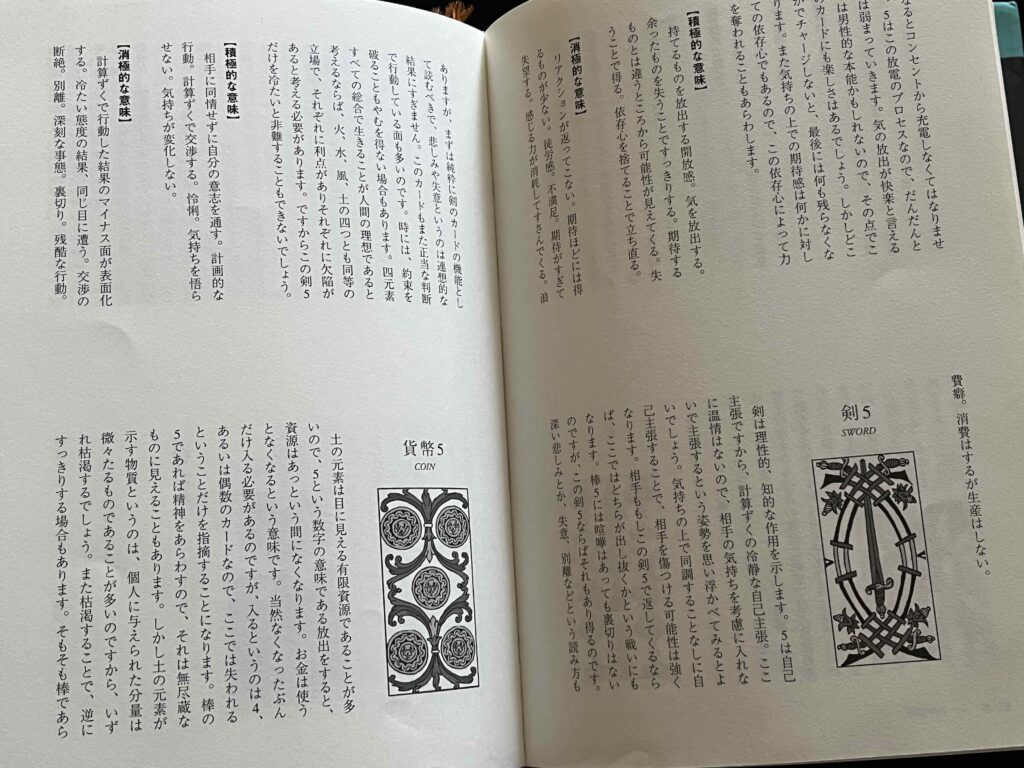 なるとコンセントから充電しなくてはなりませ
5はこの放電のプロセスなので、だんだんと
は弱まっていきます。気の放出が快楽と言える
は男性的な本能かもしれないので、その点でこ
のカードにも楽しさはあるでしょう。しかしどこ
かでチャージしないと、最後には何も残らなくな
ります。また気持ちの上での期待感は何かに対し
ての依存心でもあるので、この依存心によって力
を奪われることもあらわします。
【積極的な意味】
持てるものを放出する開放感。気を放出する。
余ったものを失うことですっきりする。期待する
ものとは違うところから可能性が見えてくる。失
うことで得る。依存心を捨てることで立ち直る。
【消極的な意味】
リアクションが返ってこない。期待ほどには得
るものが少ない。徒労感。不満足。期待がすぎて
失望する。感じる力が消耗してすさんでくる。浪
費癖。消費はするが生産はしない。
剣5
SWORD
剣は理性的、知的な作用を示します。5は自己
主張ですから、計算ずくの冷静な自己主張。ここ
に温情はないので、相手の気持ちを考慮に入れな
いで主張するという姿勢を思い浮かべてみるとよ
いでしょう。気持ちの上で同調することなしに自
己主張することで、相手を傷つける可能性は強く
なります。相手ももしこの剣5で返してくるなら
ば、ここではどちらが出し抜くかという戦いにも
なります。棒5には喧嘩はあっても裏切りはない
のですが、この剣5ならばそれもあり得るのです。
深い悲しみとか、失意、別離などという読み方も
ありますが、まずは純粋に剣のカードの機能とし
て読むべきで、悲しみや失意というのは連想的な
結果にすぎません。このカードもまた正当な判断
で行動している面も多いのです。時には、約束を
破ることもやむを得ない場合もあります。四元素
すべての総合で生きることが人間の理想であると
考えるならば、火、水、風、土の四つとも同等の
立場で、それぞれに利点がありそれぞれに欠陥が
あると考える必要があります。ですからこの剣5
だけを冷たいと非難することもできないでしょう。
【積極的な意味】
相手に同情せずに自分の意志を通す。計画的な
行動。計算ずくで交渉する。怜悧。気持ちを悟ら
せない。気持ちが変化しない。
【消極的な意味】
計算ずくで行動した結果のマイナス面が表面化
する。冷たい態度の結果、同じ目に遭う。交渉の
断絶。別離。深刻な事態。裏切り。残酷な行動。
貨幣5
COIN
土の元素は目に見える有限資源であることが多
いので、5という数字の意味である放出をすると、
資源はあっという間になくなります。お金は使う
となくなるという意味です。当然なくなったぶん
だけ入る必要があるのですが、入るというのは4、
あるいは偶数のカードなので、ここでは失われる
ということだけを指摘することになります。棒の
5であれば精神をあらわすので、それは無尽蔵な
ものに見えることもあります。しかし土の元素が
示す物質というのは、個人に与えられた分量は
微々たるものであることが多いのですから、いず
れ枯渇するでしょう。また枯渇することで、逆に
すっきりする場合もあります。そもそも棒であら